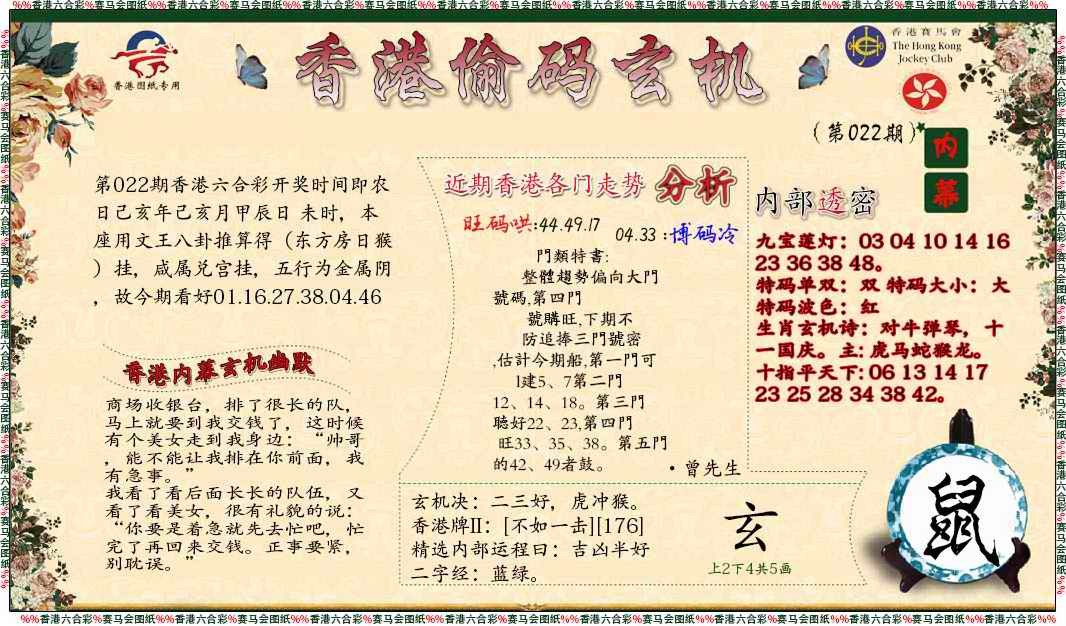 %%香港六合彩%赛马会图纸%%香港六合彩%赛马会图纸%%香港六合彩%赛马会图纸%%香港六合彩%赛马会图纸%%香港六合彩%赛马会图纸%%香港六合彩%赛马会图纸%%香港六合彩%%
香港图纸专用
香港偷码玄机
香港賽馬會
The Hong Kong
Jockey Club
（第022期）
内幕
第022期香港六合彩开奖时间即农
日己亥年己亥月甲辰日 未时，本
座用文王八卦推算得（东方房日猴
）挂，咸属兑宫挂，五行为金属阴
，故今期看好01.16.27.38.04.46
香港内幕玄机幽默
商场收银台，排了很长的队，
马上就要到我交钱了，这时候
有个美女走到我身边：“帅哥
，能不能让我排在你前面，我
有急事。”
我看了看后面长长的队伍，又
看了看美女，很有礼貌的说：
“你要是着急就先去忙吧，忙
完了再回来交钱。正事要紧，
别耽误。”
近期香港各门走势 分析
旺码哄:44.49.17
04.33 :博码冷
門類特書:
整體趨勢偏向大門
號碼,第四門
號購旺,下期不
防追捧三門號密
,估計今期船,第一門可
1建5、7第二門
12、14、18。第三門
聽好22、23,第四門
旺33、35、38。第五門
的42、49者鼓。
·曾先生
内部透密
九宝莲灯：03 04 10 14 16
23 36 38 48。
特码单双：双 特码大小：大
特码波色：红
生肖玄机诗：对牛弹琴，十
一国庆。主: 虎马蛇猴龙。
十指平天下: 06 13 14 17
23 25 28 34 38 42。
玄机决：二三好，虎冲猴。
香港牌II：[不如一击][176]
精选内部运程曰：吉凶半好
二字经：蓝绿。
玄
上2下4共5画
鼠
%%香港六合彩%赛马会图纸%%香港六合彩%赛马会图纸%%香港六合彩%赛马会图纸%%香港六合彩%赛马会图纸%%香港六合彩%赛马会图纸%%香港六合彩%赛马会图纸%%香港六合彩%%